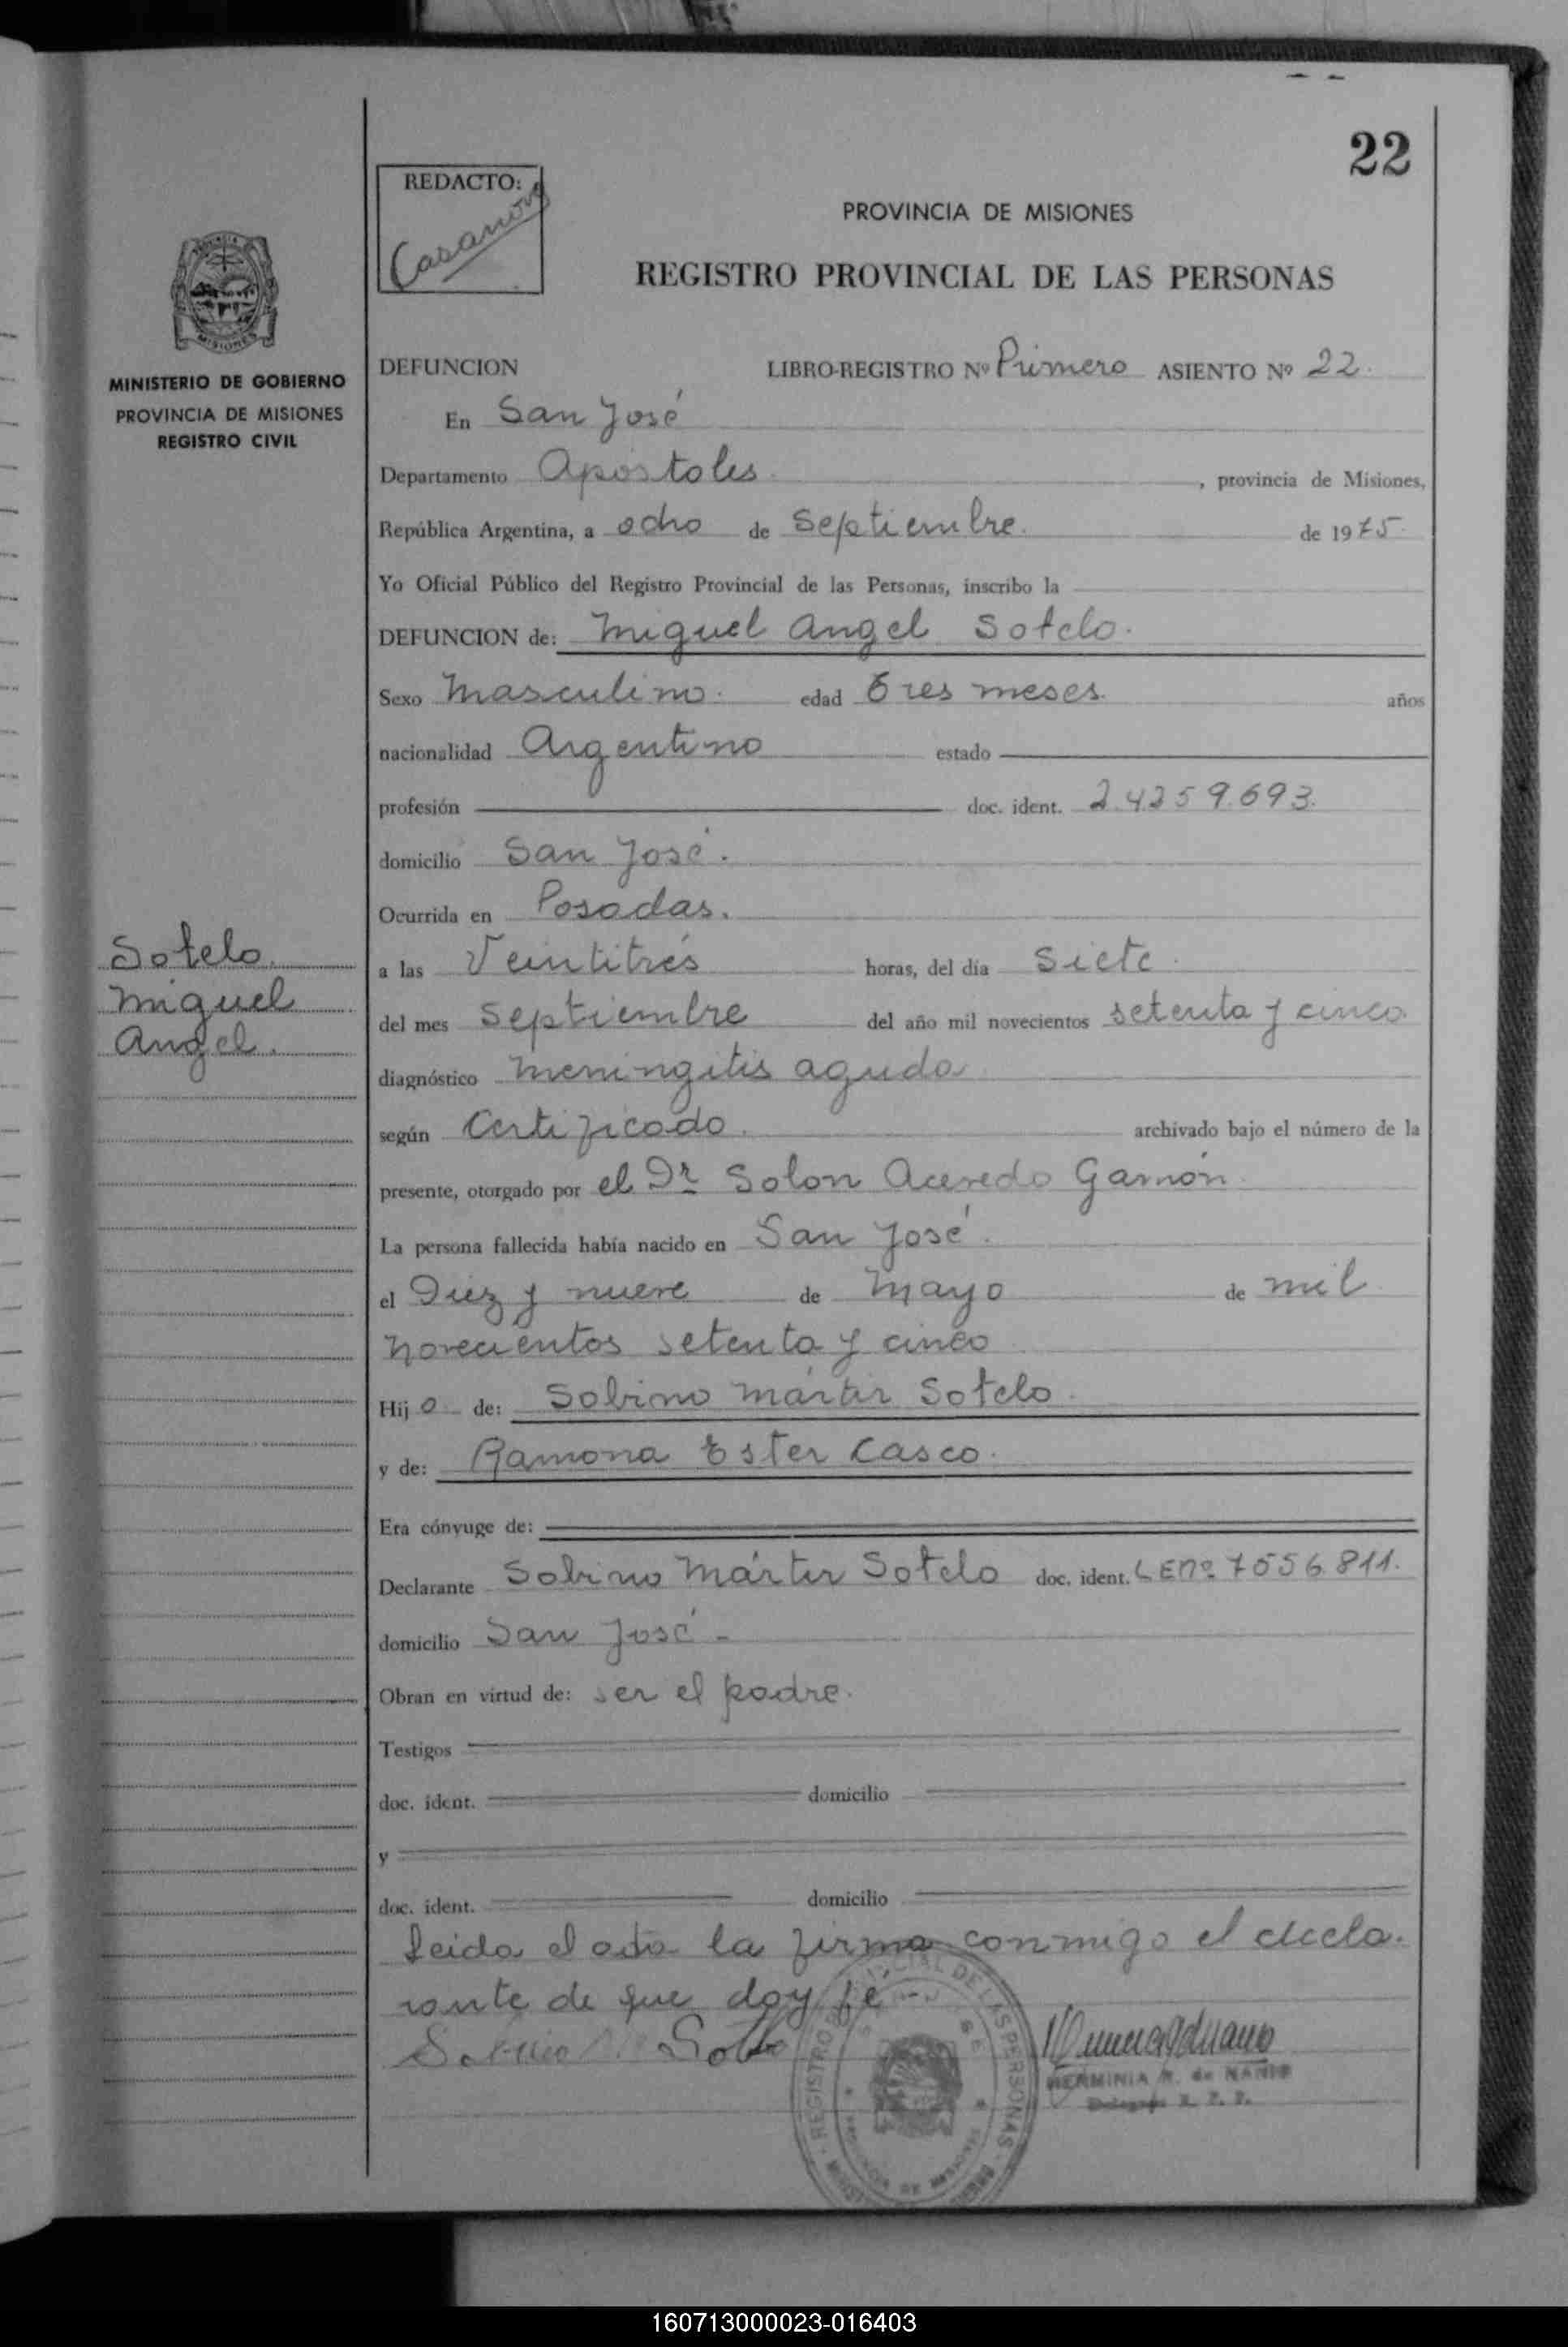 22
REDACTO:
Casanova
PROVINCIA DE MISIONES
REGISTRO PROVINCIAL DE LAS PERSONAS
MINISTERIO DE GOBIERNO
PROVINCIA DE MISIONES
REGISTRO CIVIL
DEFUNCION LIBRO-REGISTRO Nº Primero ASIENTO Nº 22.
En San José
Departamento Apóstoles , provincia de Misiones,
República Argentina, a ocho de Septiembre. de 1975.
Yo Oficial Público del Registro Provincial de las Personas, inscribo la
DEFUNCION de: Miguel Angel Sotelo.
Sexo Masculino. edad Tres meses. años
nacionalidad Argentino estado
profesión doc. ident. 24.259.693.
domicilio San José.
Ocurrida en Posadas.
Sotelo
Miguel
Angel.
a las Veintitrés horas, del día Siete.
del mes Septiembre del año mil novecientos setenta y cinco
diagnóstico Meningitis aguda
según Certificado. archivado bajo el número de la
presente, otorgado por el Dr Solon Acevedo Gamón.
La persona fallecida había nacido en San José.
el Diez y nueve de Mayo de mil
novecientos setenta y cinco
Hijo de: Sabino Mártir Sotelo.
y de: Ramona Ester Casco.
Era cónyuge de:
Declarante Sabino Mártir Sotelo doc. ident. LE Nº 7556.811.
domicilio San José -
Obran en virtud de: ser el padre.
Testigos
doc. ident. domicilio
y
doc. ident. domicilio
Leida el acta la firma conmigo el decla-
rante de que doy fé -
HERMINIA de
REGISTRO PROVINCIAL DE LAS PERSONAS
160713000023-016403